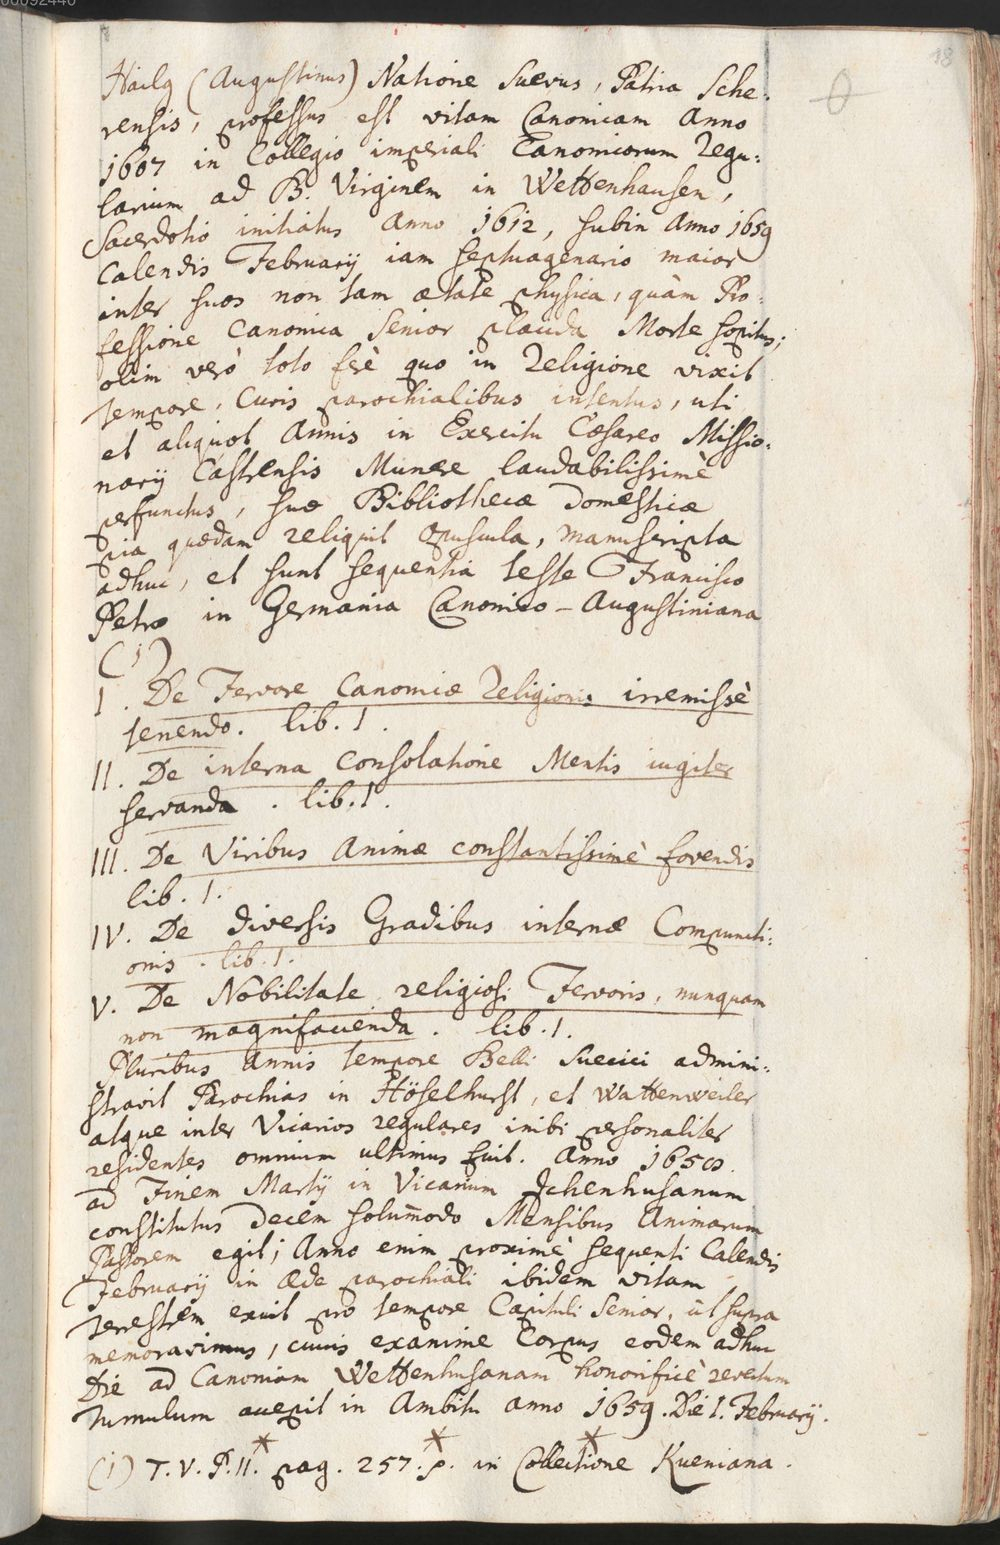 00092440
18
Hailg (Augustinus) Natione Suevus, Patria Sche:
rensis, professus est vitam Canonicam Anno
1607 in Collegio imperiali Canonicorum Regu:
larium ad B. Virginem in Wettenhausen,
Sacerdotio initiatus Anno 1612, subin Anno 1659
Calendis Februarij iam septuagenario maior
inter suos non tam ætate physica, quàm Pro:
fessione Canonica Senior placida Morte sopitus;
olim verò toto ferè quo in Religione vixit
tempore, Curis parochialibus intentus, uti
et aliquot Annis in Exercitu Cæsareo Missio:
narij Castrensis Munere laudabilissimè
perfunctus, suæ Bibliothecæ Domesticæ
pia quædam reliquit opuscula, manuscripta
adhuc, et sunt sequentia teste Francisco
Petro in Germania Canonico-Augustiniana
(1)
I. De Fervore Canonicæ Religionis irremissè
tenendo. lib. 1.
II. De interna Consolatione Mentis iugiter
servanda. lib. 1.
III. De Viribus Animæ constantissimè fovendis
lib. 1.
IV. De diversis Gradibus internæ Compuncti:
onis. lib. 1.
V. De Nobilitate religiosi Fervoris, nunquam
non magnifacienda. lib. 1.
Pluribus Annis tempore Belli Suecici admini:
stravit Parochias in Höselhurst, et Wattenweiler
atque inter Vicarios regulares inibi personaliter
residentes omnium ultimus fuit. Anno 1658.
ad Finem Martij in Vicarium Ichenhusanum
constitutus Decem solum̄odo Mensibus Animarum
Pastorem egit; Anno enim proximè sequenti Calendis
Februarij in Æde parochiali ibidem vitam
terestrem exuit pro tempore Capituli Senior, ut supra
memoravimus, cuius exanime Corpus eodem adhuc
Die ad Canoniam Wettenhusanam honorificè revectum
tumulum accepit in Ambitu Anno 1659. Die 1. Februarij.
(1) T. V. P. II. pag. 257. in Collectione Kueniana.